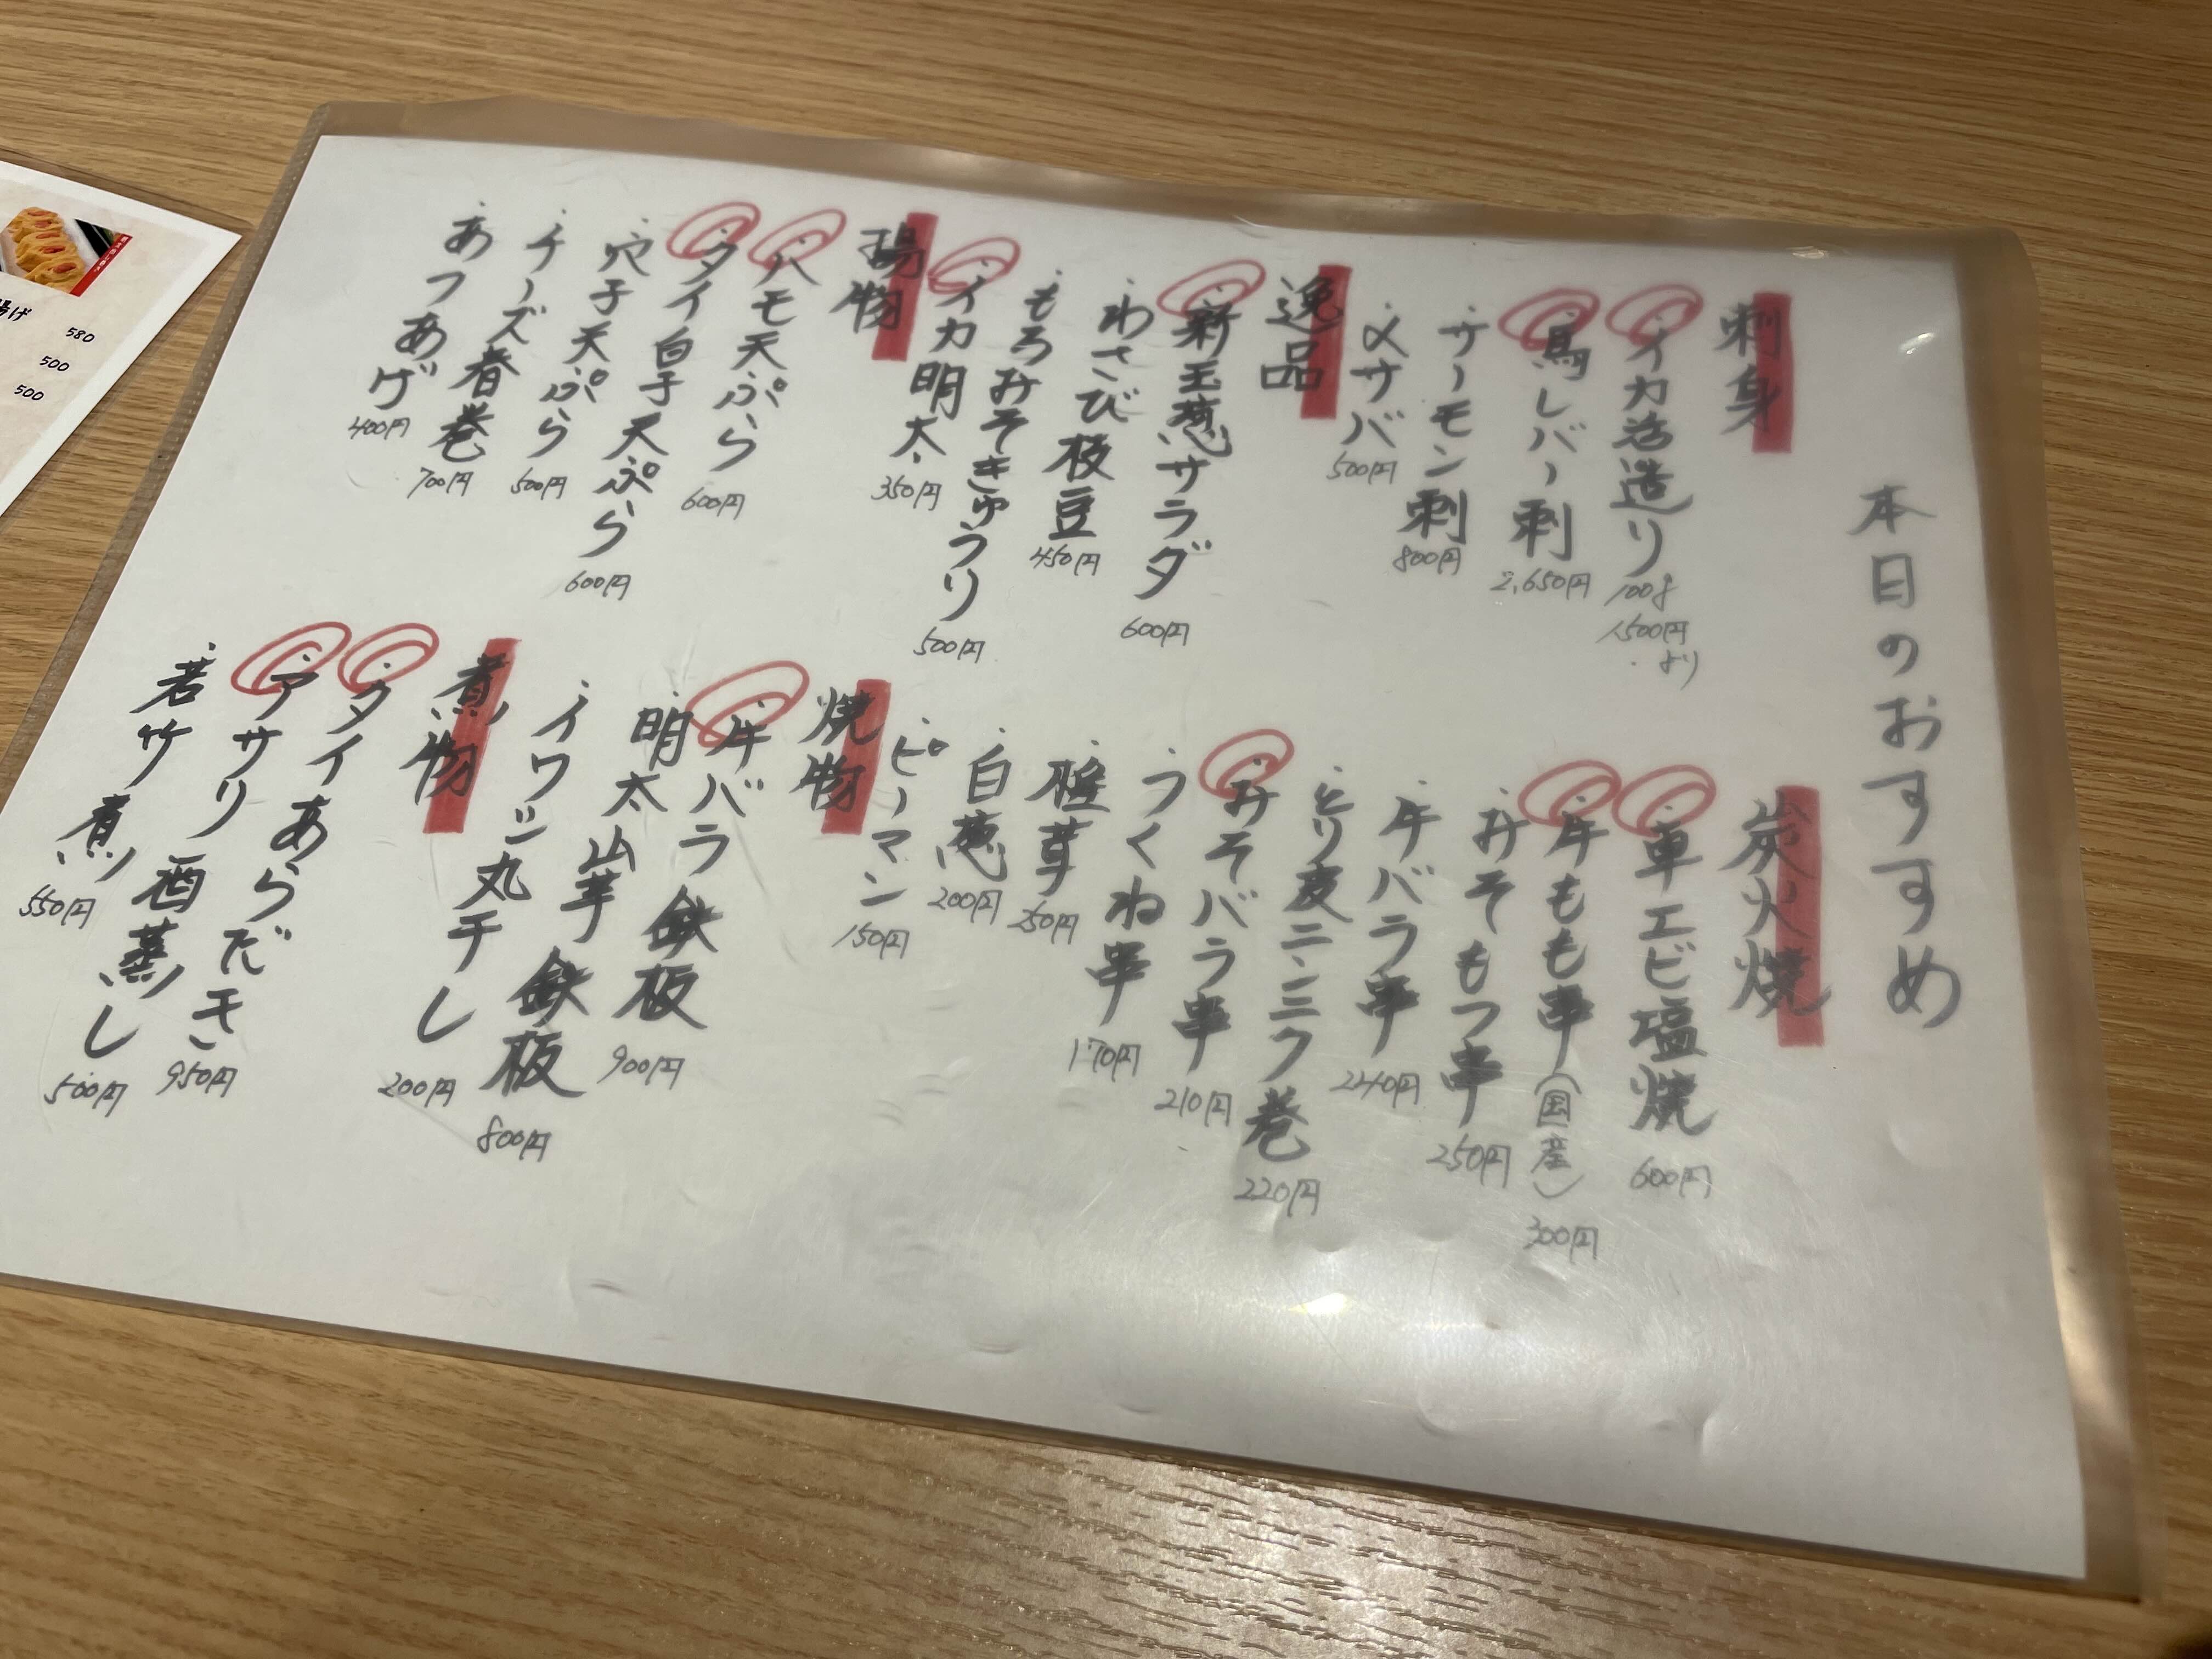 本日のおすすめ
刺身
・イカ活造り 100g 1,500円より
・馬レバー刺 2,650円
・サーモン刺 800円
・〆サバ 500円
逸品
・新玉葱サラダ 600円
・わさび枝豆 450円
・もろみそきゅうり 500円
・イカ明太 350円
揚物
・ハモ天ぷら 600円
・タイ白子天ぷら 600円
・穴子天ぷら 500円
・チーズ春巻 700円
・あつあげ 400円
炭火焼
・車エビ塩焼 600円
・牛もも串(国産) 300円
・みそもつ串 250円
・牛バラ串 240円
・とり皮ニンニク巻 220円
・みそバラ串 210円
・つくね串 170円
・椎茸 250円
・白葱 200円
・ピーマン 150円
焼物
・牛バラ鉄板 900円
・明太山芋鉄板 800円
・イワシ丸干し 200円
煮物
・タイあらだき 950円
・アサリ酒蒸し 500円
・若竹煮 550円
揚げ
580
500
500